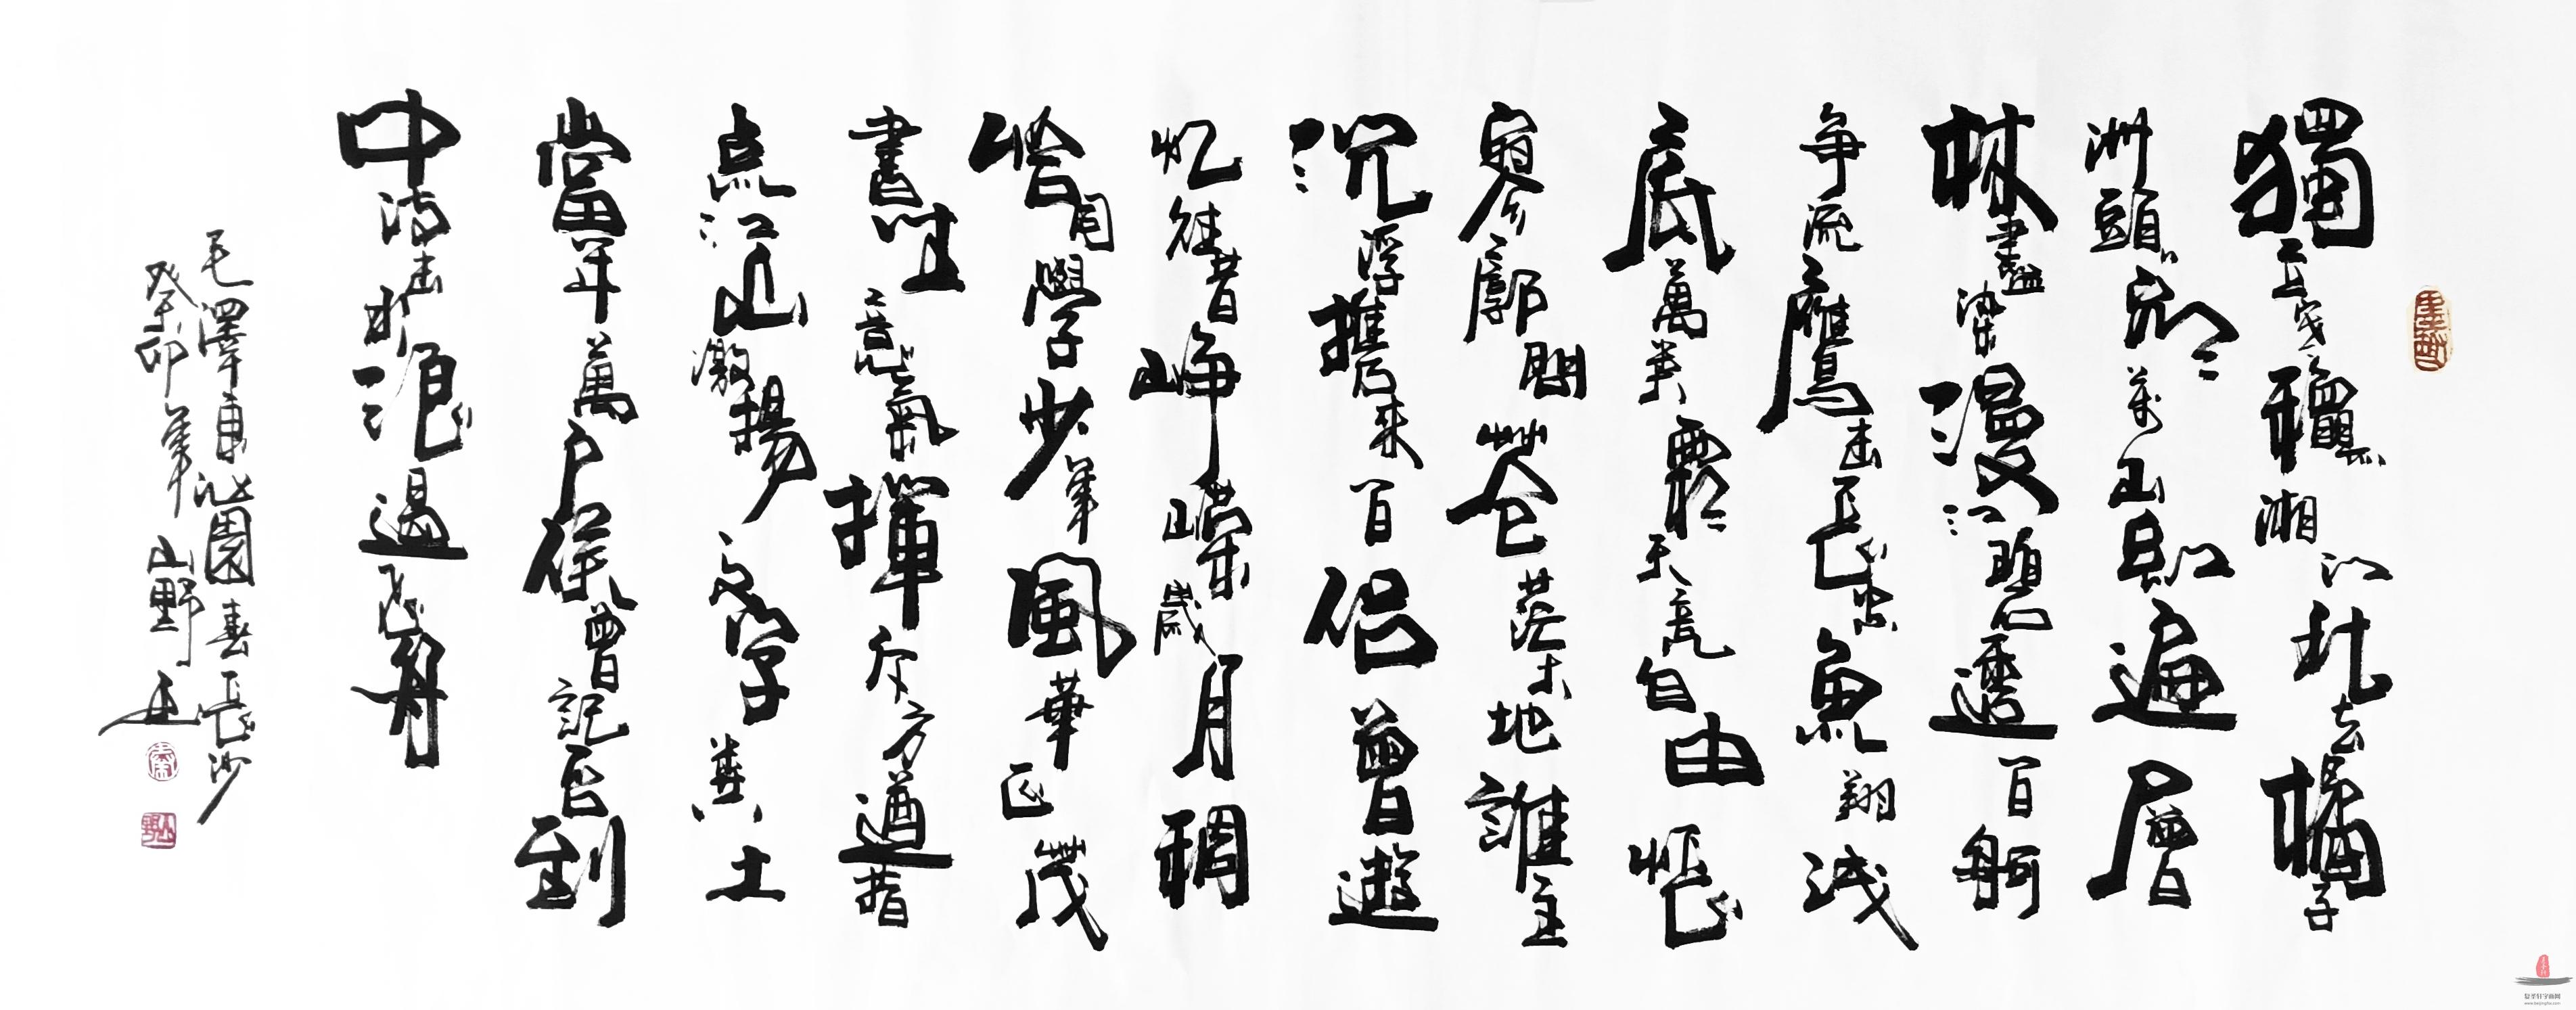 獨立寒龝湘江北去橘子
洲頭看万山紅遍層
林盡染漫江碧透百舸
争流鷹击長空魚翔浅
底萬类霜天競自由悵
寥廓問蒼茫大地誰主
沉浮攜来百侣曾遊
忆往昔崢嶸歲月稠
恰同學少年風華正茂
書生意氣揮斥方遒指
点江山激揚文字糞土
當年萬户侯曾記否到
中流击水浪遏飛舟
毛澤東沁園春長沙
癸卯年山野